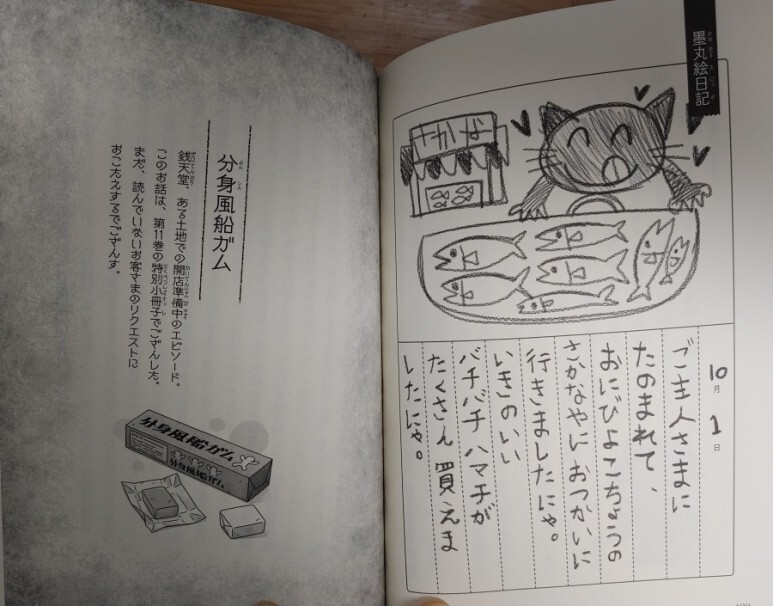 墨丸絵日記
さかなや
10月1日
ご主人さまに
たのまれて、
おにびよこちょうの
さかなやに おつかいに
行きましたにゃ。
いきのいい
バチバチ ハマチが
たくさん 買えま
したにゃ。
分身風船ガム
銭天堂、ある土地での開店準備中のエピソード。
このお話は、第11巻の特別小冊子でござんした。
まだ、読んでいないお客さまのリクエストに
おこたえするでござんす。
分身風船ガム
分身風船ガム